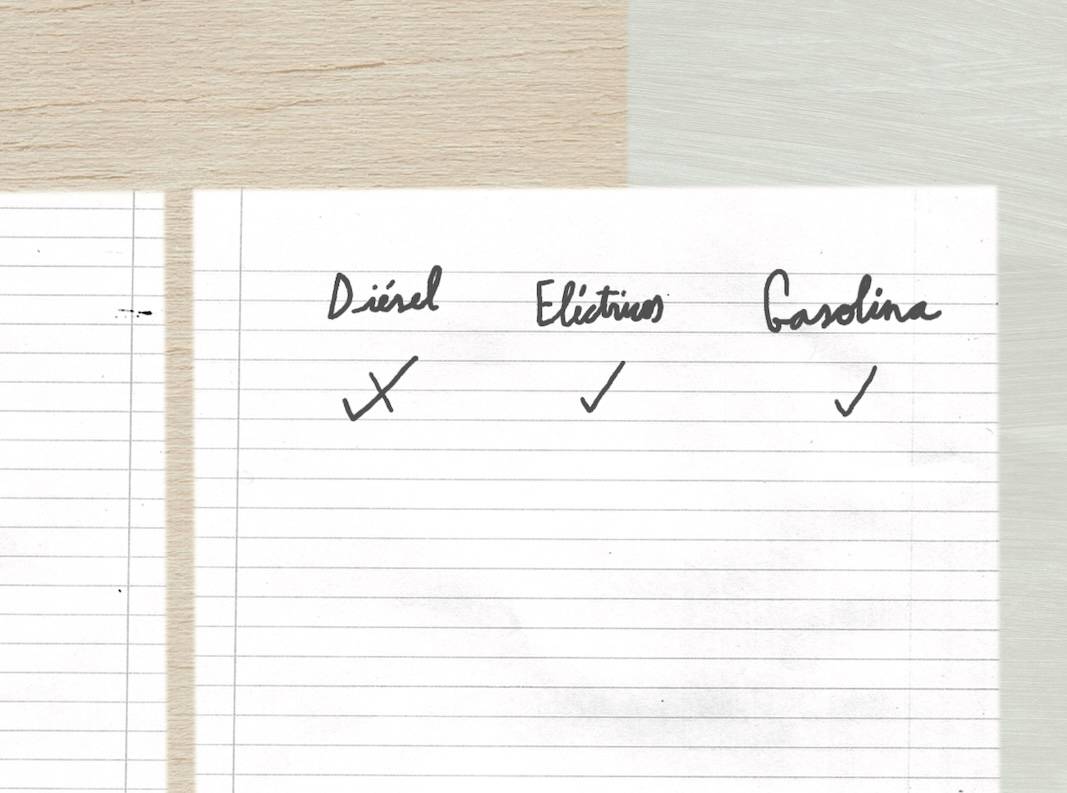 Diésel Eléctricos Gasolina